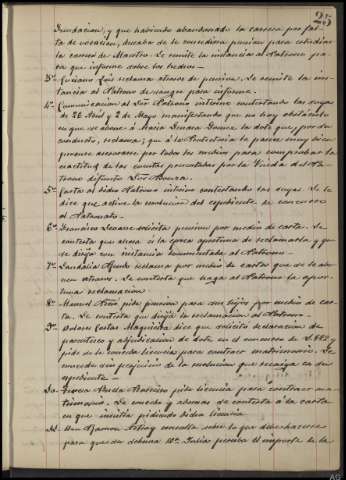 25
fundacional, y que habiendo abandonado la carrera por fal-
ta de vocacion, desea de le concediera pension para estudiar
la carrera de Maestro. Se remite la instancia al Patrono pa-
ra que informe sobre los hechos —
3º Luciano Luis reclama atrasos de pensión. Se remite la ins-
tancia al Patrono de sangre para informe.
4º Comunicacion al Sor Patrono interino contestando las suyas
de 26 Abril y 2 de Mayo manifestandole que no hay obstáculo
en que se abone á Maria Genara Gomez la dote que, por su
conducto, reclama; que á la Protectoria le parece muy bien
procure asesorarse por todos los medios para comprobar la
exactitud de las cuentas presentadas por la Viuda del Pa-
trono difunto Sor
5º Carta al dicho Patrono interino contestando las suyas. Se le
dice que active la conclusion del expediente de concurso
al Patronato.
6º Francisco Seoane solicita pension por medio de carta. Se
contesta que ahora es la época oportuna de reclamarla y que
se dirija con instancia documentada al Patrono.
7º reclama por medio de carta que se le abo-
nen atrasos. Se contesta que haga al Patrono la opor-
tuna reclamacion.
8º Manuel pide pension para sus hijos por medio de car-
ta. Se contesta que dirija la reclamacion al Patrono.
9º Dolores Costas Magariños dice que solicitó declaracion de
parentesco y adjudicacion de dote en el concurso de
pide se le conceda licencia para contraer matrimonio. Se
concede sin perjuicio de la resolucion que recaiga en su
expediente —
10. Teresa pide licencia para contraer ma-
trimonio. Se concede y ademas se contesta á la carta
en que insistia pidiendo dicha licencia
11. Don Ramon consulta sobre lo que debe hacerse
para que su percibe el importe de la
AG